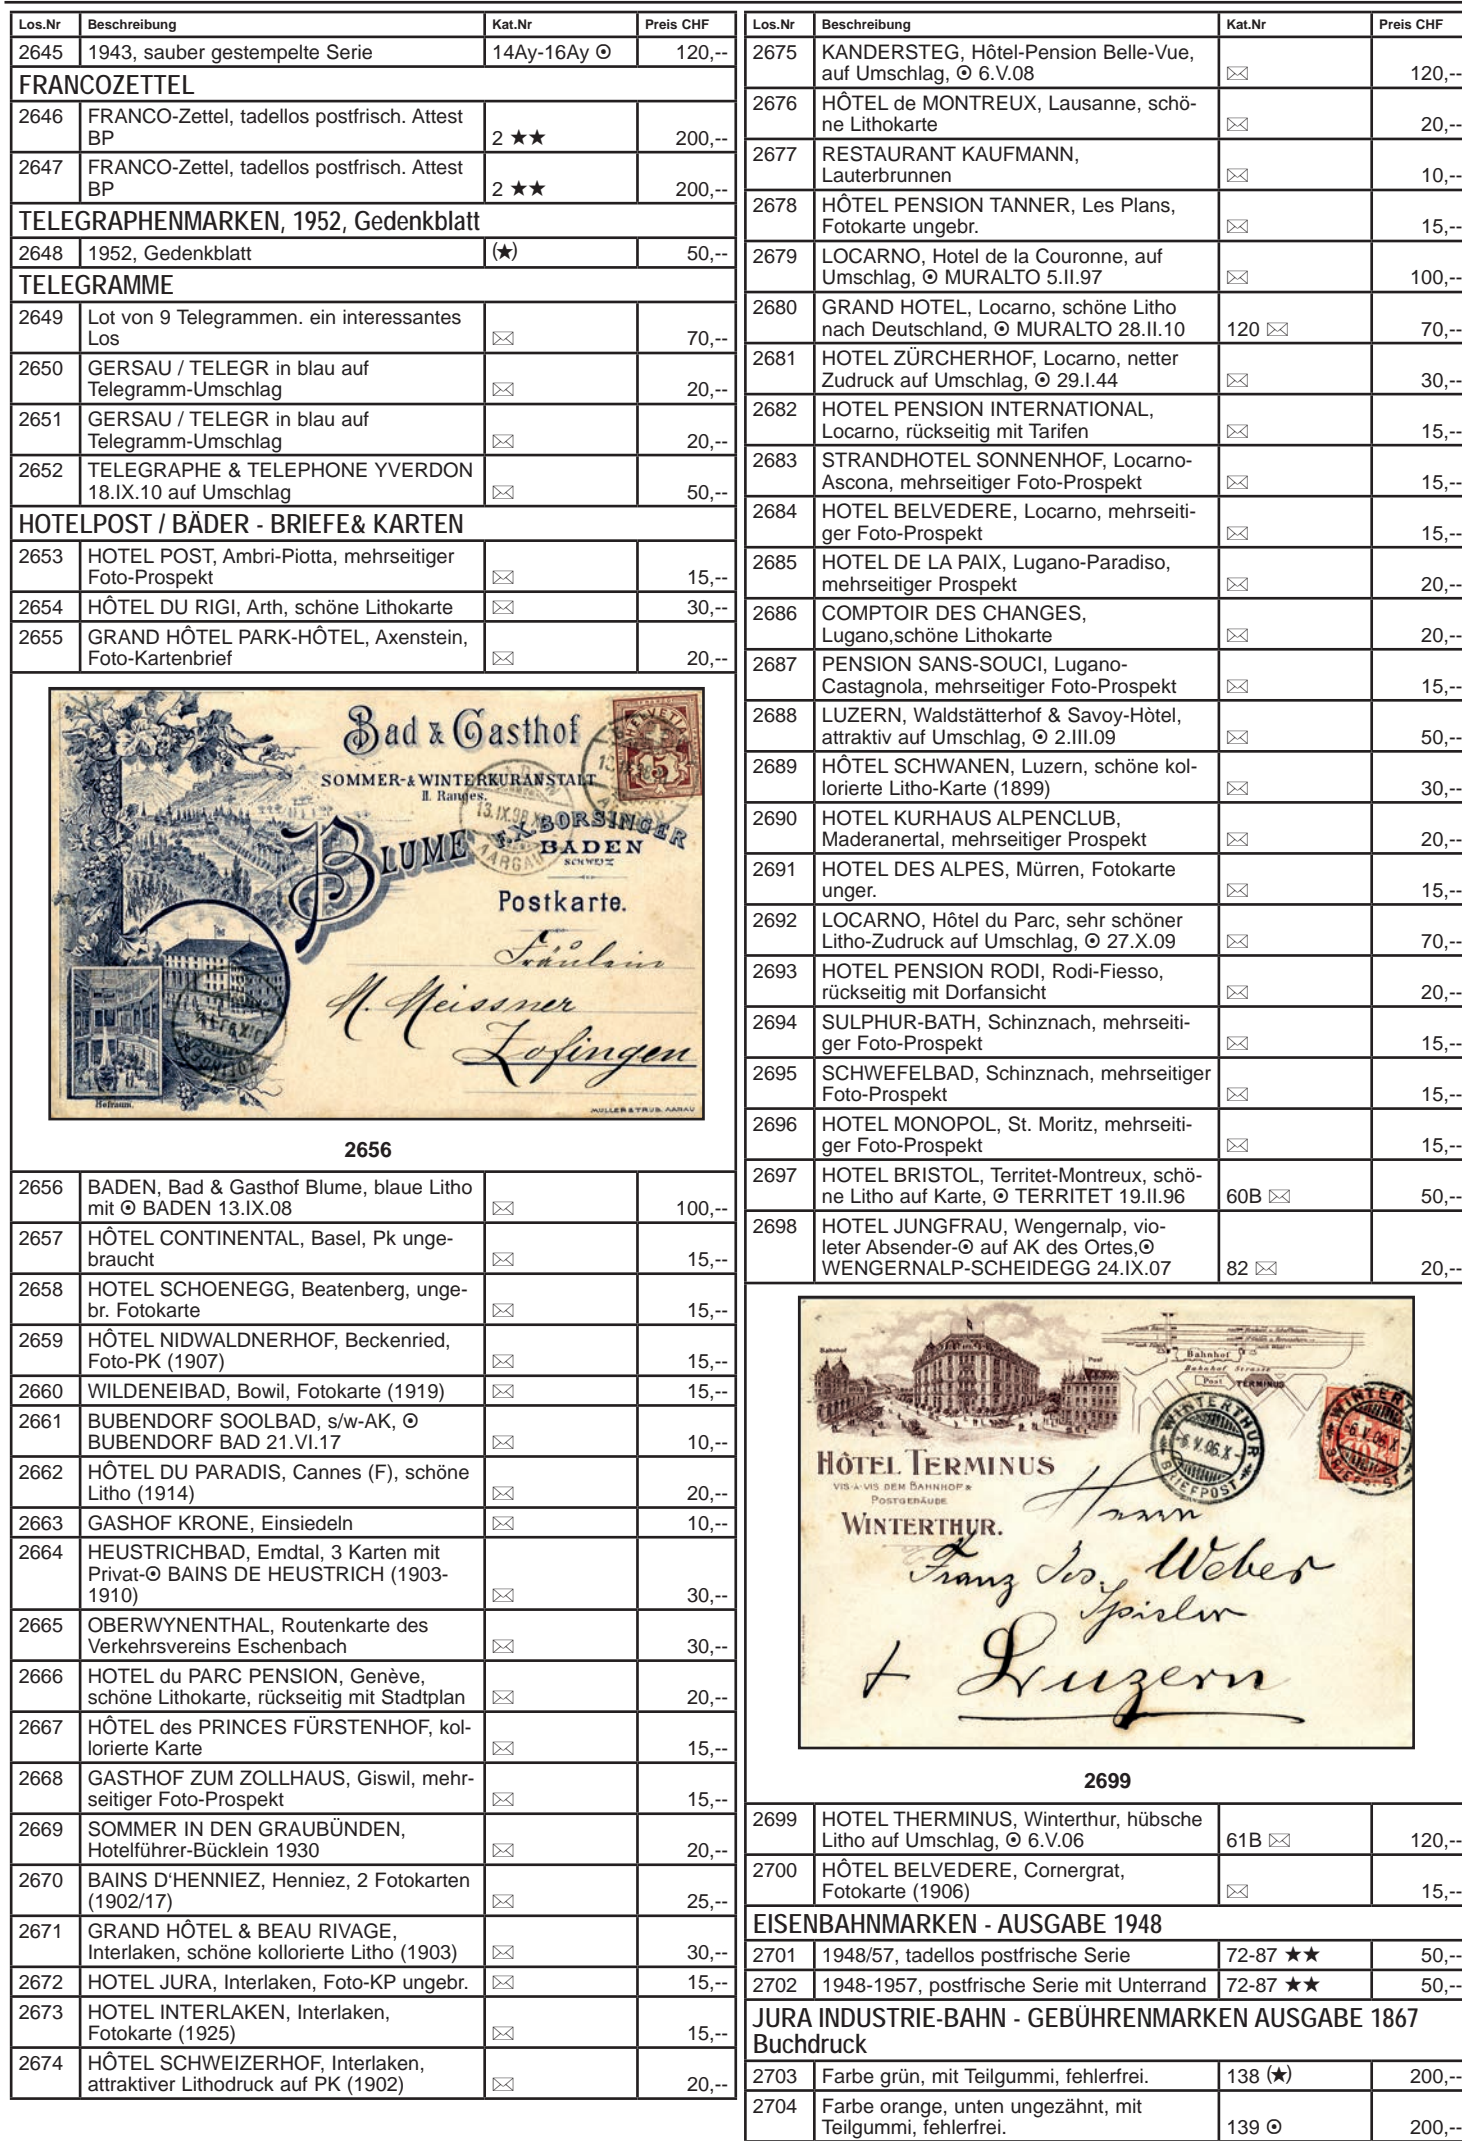 Los.Nr Beschreibung Kat.Nr Preis CHF
2645 1943, sauber gestempelte Serie 14Ay-16Ay ⊙ 120,--
FRANCOZETTEL
2646 FRANCO-Zettel, tadellos postfrisch. Attest
BP 2 ★★ 200,--
2647 FRANCO-Zettel, tadellos postfrisch. Attest
BP 2 ★★ 200,--
TELEGRAPHENMARKEN, 1952, Gedenkblatt
2648 1952, Gedenkblatt (★) 50,--
TELEGRAMME
2649 Lot von 9 Telegrammen. ein interessantes
Los ✉ 70,--
2650 GERSAU / TELEGR in blau auf
Telegramm-Umschlag ✉ 20,--
2651 GERSAU / TELEGR in blau auf
Telegramm-Umschlag ✉ 20,--
2652 TELEGRAPHE & TELEPHONE YVERDON
18.IX.10 auf Umschlag ✉ 50,--
HOTELPOST / BÄDER - BRIEFE& KARTEN
2653 HOTEL POST, Ambri-Piotta, mehrseitiger
Foto-Prospekt ✉ 15,--
2654 HÔTEL DU RIGI, Arth, schöne Lithokarte ✉ 30,--
2655 GRAND HÔTEL PARK-HÔTEL, Axenstein,
Foto-Kartenbrief ✉ 20,--
Bad & Gasthof
SOMMER-& WINTERKURANSTALT
II. Ranges.
BLUME
F.X. BORSINGER
BADEN
SCHWEIZ
Postkarte.
HELVETIA
5
13.IX.98
AARGAU
Fräulein
M. Meissner
Zofingen
Hofraum.
MÜLLER & TRÜB, AARAU
2656
2656 BADEN, Bad & Gasthof Blume, blaue Litho
mit ⊙ BADEN 13.IX.08 ✉ 100,--
2657 HÔTEL CONTINENTAL, Basel, Pk unge-
braucht ✉ 15,--
2658 HOTEL SCHOENEGG, Beatenberg, unge-
br. Fotokarte ✉ 15,--
2659 HÔTEL NIDWALDNERHOF, Beckenried,
Foto-PK (1907) ✉ 15,--
2660 WILDENEIBAD, Bowil, Fotokarte (1919) ✉ 15,--
2661 BUBENDORF SOOLBAD, s/w-AK, ⊙
BUBENDORF BAD 21.VI.17 ✉ 10,--
2662 HÔTEL DU PARADIS, Cannes (F), schöne
Litho (1914) ✉ 20,--
2663 GASHOF KRONE, Einsiedeln ✉ 10,--
2664 HEUSTRICHBAD, Emdtal, 3 Karten mit
Privat-⊙ BAINS DE HEUSTRICH (1903-
1910) ✉ 30,--
2665 OBERWYNENTHAL, Routenkarte des
Verkehrsvereins Eschenbach ✉ 30,--
2666 HOTEL du PARC PENSION, Genève,
schöne Lithokarte, rückseitig mit Stadtplan ✉ 20,--
2667 HÔTEL des PRINCES FÜRSTENHOF, kol-
lorierte Karte ✉ 15,--
2668 GASTHOF ZUM ZOLLHAUS, Giswil, mehr-
seitiger Foto-Prospekt ✉ 15,--
2669 SOMMER IN DEN GRAUBÜNDEN,
Hotelführer-Bücklein 1930 ✉ 20,--
2670 BAINS D'HENNIEZ, Henniez, 2 Fotokarten
(1902/17) ✉ 25,--
2671 GRAND HÔTEL & BEAU RIVAGE,
Interlaken, schöne kollorierte Litho (1903) ✉ 30,--
2672 HOTEL JURA, Interlaken, Foto-KP ungebr. ✉ 15,--
2673 HOTEL INTERLAKEN, Interlaken,
Fotokarte (1925) ✉ 15,--
2674 HÔTEL SCHWEIZERHOF, Interlaken,
attraktiver Lithodruck auf PK (1902) ✉ 20,--
Los.Nr Beschreibung Kat.Nr Preis CHF
2675 KANDERSTEG, Hôtel-Pension Belle-Vue,
auf Umschlag, ⊙ 6.V.08 ✉ 120,--
2676 HÔTEL de MONTREUX, Lausanne, schö-
ne Lithokarte ✉ 20,--
2677 RESTAURANT KAUFMANN,
Lauterbrunnen ✉ 10,--
2678 HÔTEL PENSION TANNER, Les Plans,
Fotokarte ungebr. ✉ 15,--
2679 LOCARNO, Hotel de la Couronne, auf
Umschlag, ⊙ MURALTO 5.II.97 ✉ 100,--
2680 GRAND HOTEL, Locarno, schöne Litho
nach Deutschland, ⊙ MURALTO 28.II.10 120 ✉ 70,--
2681 HOTEL ZÜRCHERHOF, Locarno, netter
Zudruck auf Umschlag, ⊙ 29.I.44 ✉ 30,--
2682 HOTEL PENSION INTERNATIONAL,
Locarno, rückseitig mit Tarifen ✉ 15,--
2683 STRANDHOTEL SONNENHOF, Locarno-
Ascona, mehrseitiger Foto-Prospekt ✉ 15,--
2684 HOTEL BELVEDERE, Locarno, mehrseiti-
ger Foto-Prospekt ✉ 15,--
2685 HOTEL DE LA PAIX, Lugano-Paradiso,
mehrseitiger Prospekt ✉ 20,--
2686 COMPTOIR DES CHANGES,
Lugano,schöne Lithokarte ✉ 20,--
2687 PENSION SANS-SOUCI, Lugano-
Castagnola, mehrseitiger Foto-Prospekt ✉ 15,--
2688 LUZERN, Waldstätterhof & Savoy-Hòtel,
attraktiv auf Umschlag, ⊙ 2.III.09 ✉ 50,--
2689 HÔTEL SCHWANEN, Luzern, schöne kol-
lorierte Litho-Karte (1899) ✉ 30,--
2690 HOTEL KURHAUS ALPENCLUB,
Maderanertal, mehrseitiger Prospekt ✉ 20,--
2691 HOTEL DES ALPES, Mürren, Fotokarte
unger. ✉ 15,--
2692 LOCARNO, Hôtel du Parc, sehr schöner
Litho-Zudruck auf Umschlag, ⊙ 27.X.09 ✉ 70,--
2693 HOTEL PENSION RODI, Rodi-Fiesso,
rückseitig mit Dorfansicht ✉ 20,--
2694 SULPHUR-BATH, Schinznach, mehrseiti-
ger Foto-Prospekt ✉ 15,--
2695 SCHWEFELBAD, Schinznach, mehrseitiger
Foto-Prospekt ✉ 15,--
2696 HOTEL MONOPOL, St. Moritz, mehrseiti-
ger Foto-Prospekt ✉ 15,--
2697 HOTEL BRISTOL, Territet-Montreux, schö-
ne Litho auf Karte, ⊙ TERRITET 19.II.96 60B ✉ 50,--
2698 HOTEL JUNGFRAU, Wengernalp, vio-
leter Absender-⊙ auf AK des Ortes,⊙
WENGERNALP-SCHEIDEGG 24.IX.07 82 ✉ 20,--
Bahnhof
Post
Bahnhof
Bahnhof Strasse
Post TERMINUS
WINTERTHUR
-6.V.06.X-
BRIEFPOST
WINTERTHUR
-6.V.06.X-
BRIEFPOST
HÔTEL TERMINUS
VIS-À-VIS DEM BAHNHOF &
POSTGEBÄUDE
WINTERTHUR.
Herrn
Franz Jos. Weber
Spisler
Luzern
2699
2699 HOTEL THERMINUS, Winterthur, hübsche
Litho auf Umschlag, ⊙ 6.V.06 61B ✉ 120,--
2700 HÔTEL BELVEDERE, Cornergrat,
Fotokarte (1906) ✉ 15,--
EISENBAHNMARKEN - AUSGABE 1948
2701 1948/57, tadellos postfrische Serie 72-87 ★★ 50,--
2702 1948-1957, postfrische Serie mit Unterrand 72-87 ★★ 50,--
JURA INDUSTRIE-BAHN - GEBÜHRENMARKEN AUSGABE 1867
Buchdruck
2703 Farbe grün, mit Teilgummi, fehlerfrei. 138 (★) 200,--
2704 Farbe orange, unten ungezähnt, mit
Teilgummi, fehlerfrei. 139 ⊙ 200,--